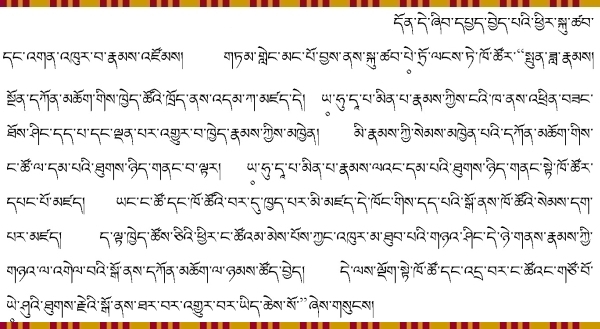 དོན་དེ་ཞིབ་དཔྱད་བྱེད་པའི་ཕྱིར་སྐུ་ཚབ་
དང་འགན་འཁུར་བ་རྣམས་འཛོམས། གཏམ་གླེང་མང་པོ་བྱས་ནས་སྐུ་ཚབ་པེ་ཏྲོ་ལངས་ཏེ་ཁོ་ཚོར་“སྤུན་ཟླ་རྣམས།
སྔོན་དཀོན་མཆོག་གིས་ཁྱེད་ཚོའི་ཁྲོད་ནས་འདམ་ཀ་མཛད་དེ། ཡ་ཧུ་དཱ་པ་མིན་པ་རྣམས་ཀྱིས་ངའི་ཁ་ནས་འཕྲིན་བཟང་
ཐོས་ཤིང་དད་པ་དང་ལྡན་པར་འགྱུར་བ་ཁྱེད་རྣམས་ཀྱིས་མཁྱེན། མི་རྣམས་ཀྱི་སེམས་མཁྱེན་པའི་དཀོན་མཆོག་གིས་
ང་ཚོ་ལ་དམ་པའི་ཐུགས་ཉིད་གནང་བ་ལྟར། ཡ་ཧུ་དཱ་པ་མིན་པ་རྣམས་ལའང་དམ་པའི་ཐུགས་ཉིད་གནང་སྟེ་ཁོ་ཚོར་
དཔང་པོ་མཛད། ཡང་ང་ཚོ་དང་ཁོ་ཚོའི་བར་དུ་ཁྱད་པར་མི་མཛད་དེ་ཁོང་གིས་དད་པའི་སྒོ་ནས་ཁོ་ཚོའི་སེམས་དག་
པར་མཛད། ད་ལྟ་ཁྱེད་ཚོས་ཅིའི་ཕྱིར་ང་ཚོའམ་མེས་པོས་ཀྱང་འཁུར་མ་ཐུབ་པའི་གཉའ་ཤིང་དེ་ཉེ་གནས་རྣམས་ཀྱི་
གཉའ་ལ་འགེལ་བའི་སྒོ་ནས་དཀོན་མཆོག་ལ་ཉམས་ཚོད་བྱེད། དེ་ལས་ལྡོག་སྟེ་ཁོ་ཚོ་དང་འདྲ་བར་ང་ཚོའང་གཙོ་བོ་
ཡེ་ཤུའི་ཐུགས་རྗེའི་སྒོ་ནས་ཐར་བར་འགྱུར་བར་ཡིད་ཆེས་སོ་”ཞེས་གསུངས།